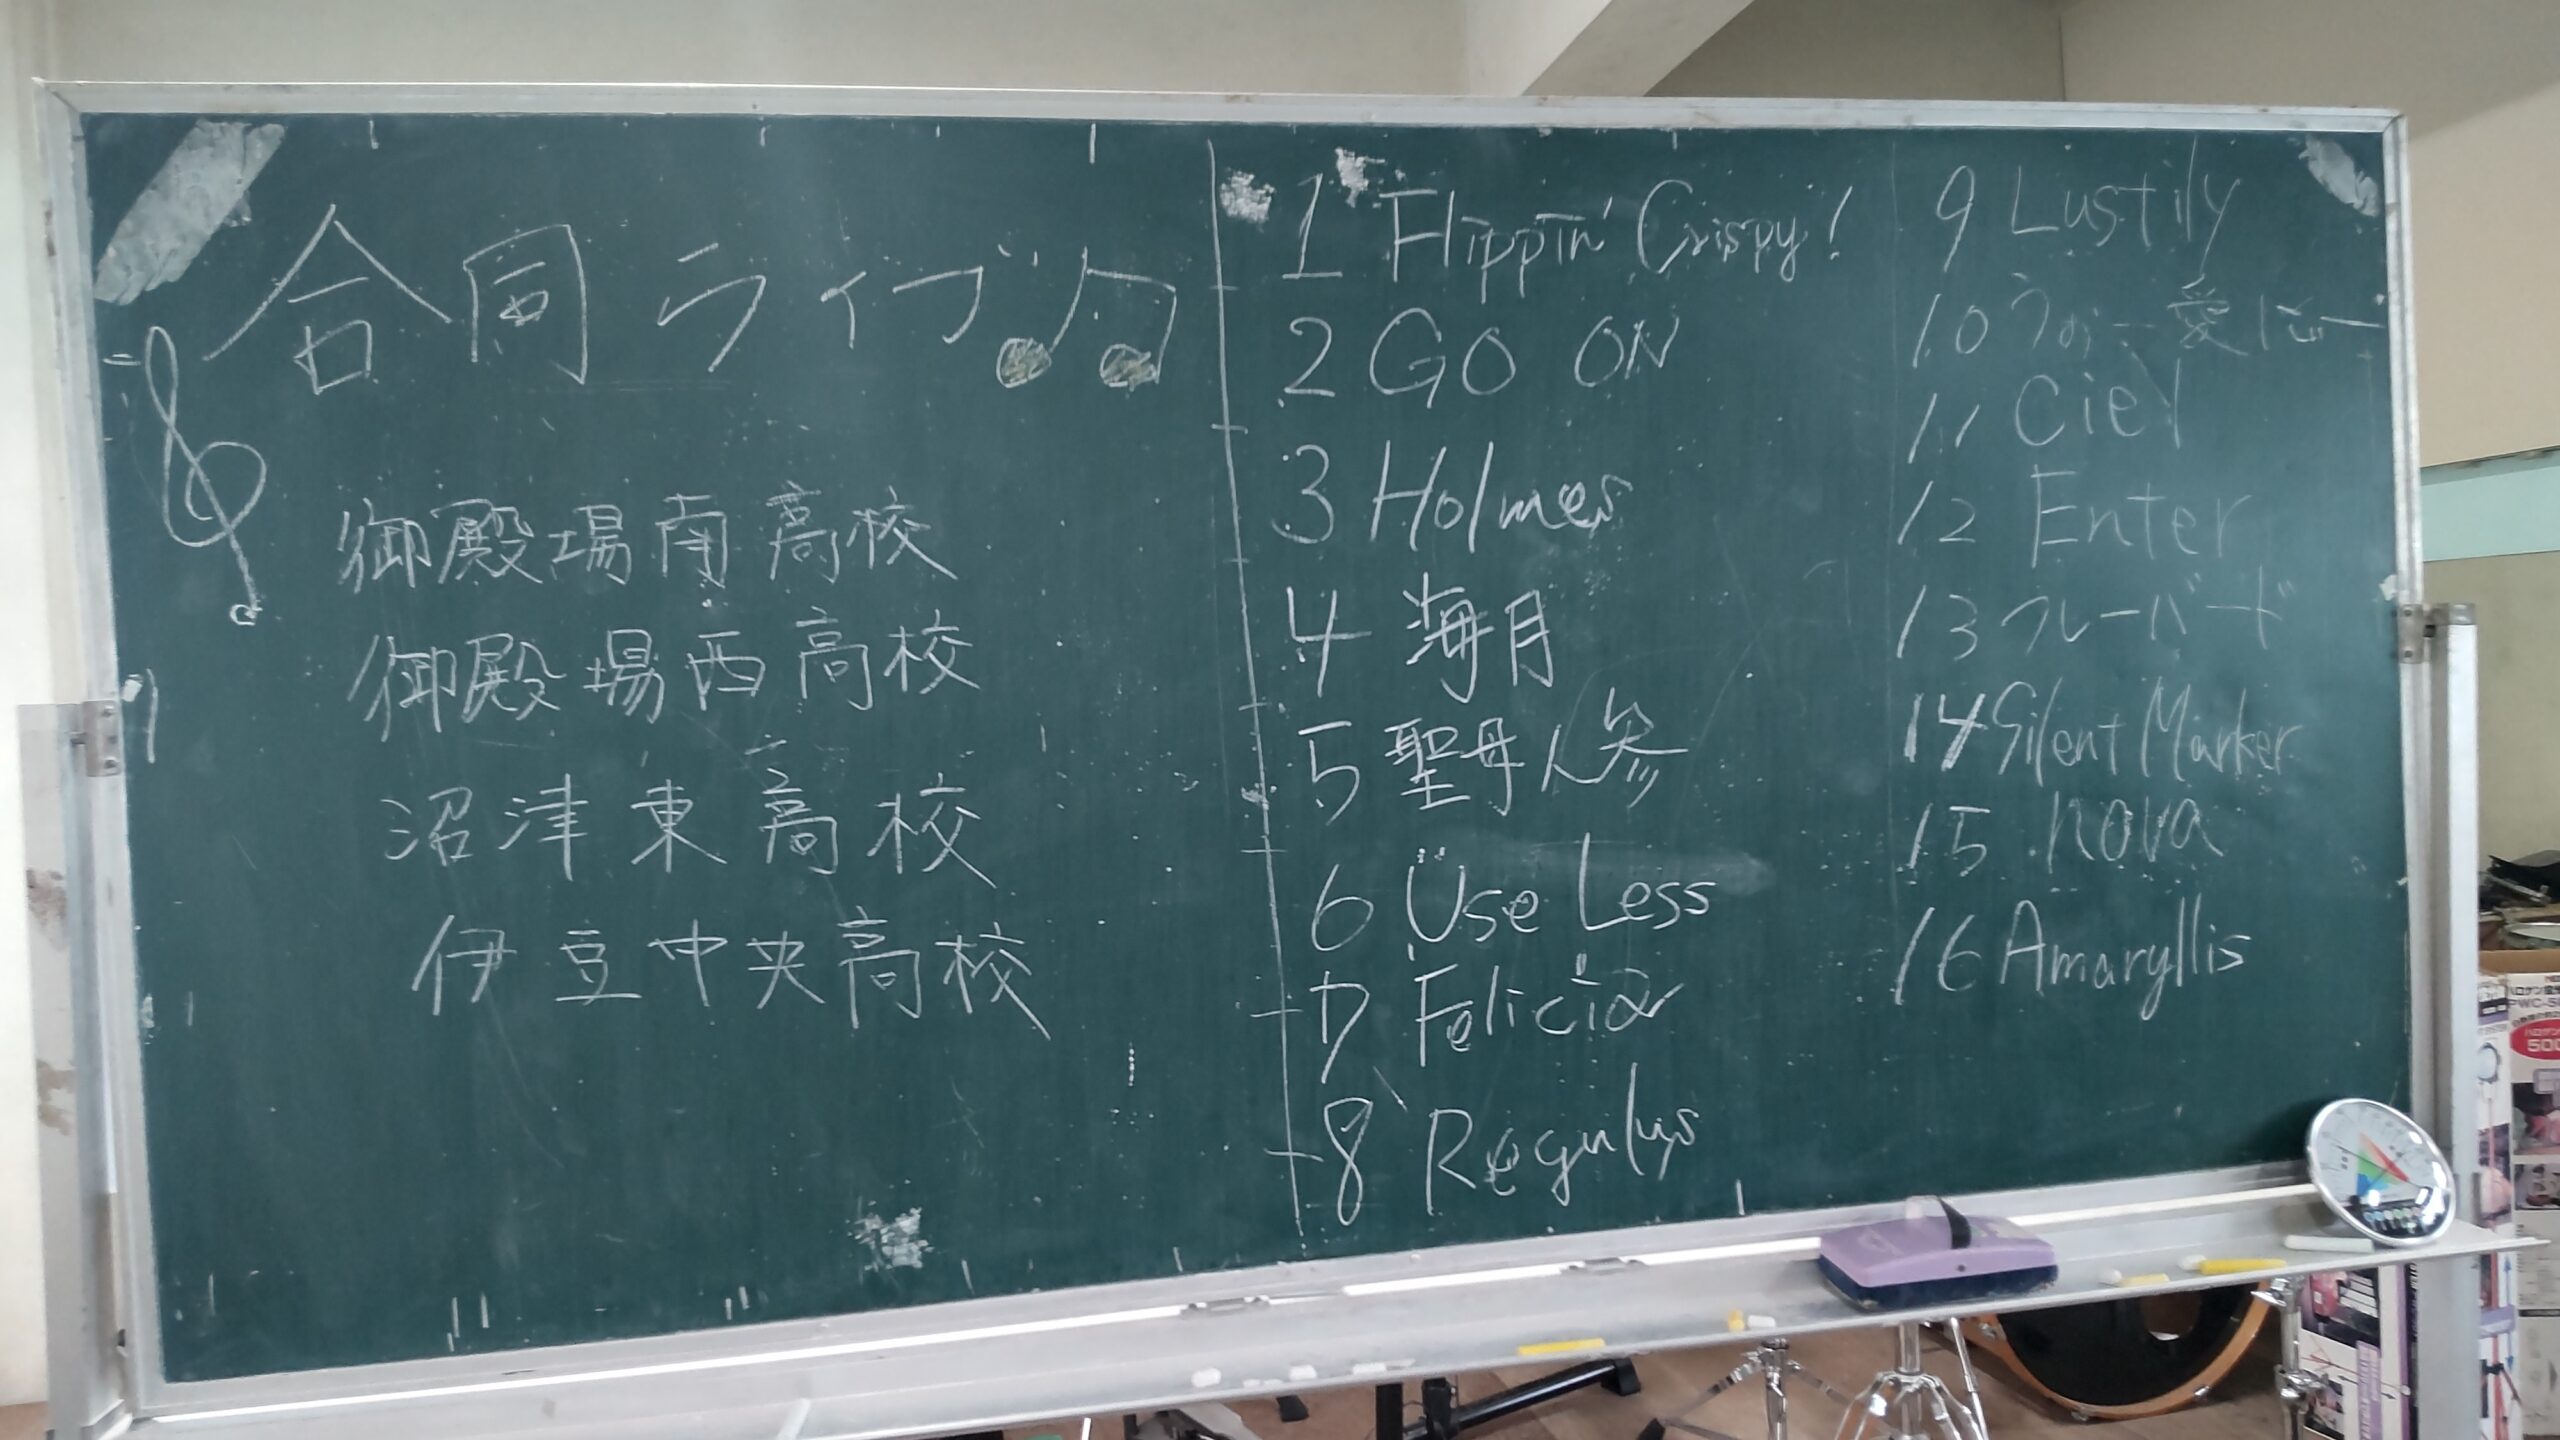 合同ライブ
御殿場南高校
御殿場西高校
沼津東高校
伊豆中央高校
1 Flippin' Crispy!
2 GO ON
3 Holmes
4 海月
5 聖母人参
6 Use Less
7 Felicia
8 Regulus
9 Lustily
10
11 Ciel
12 Enter
13 フレーバード
14 Silent Marker
15 nova
16 Amaryllis
PWC-5
500